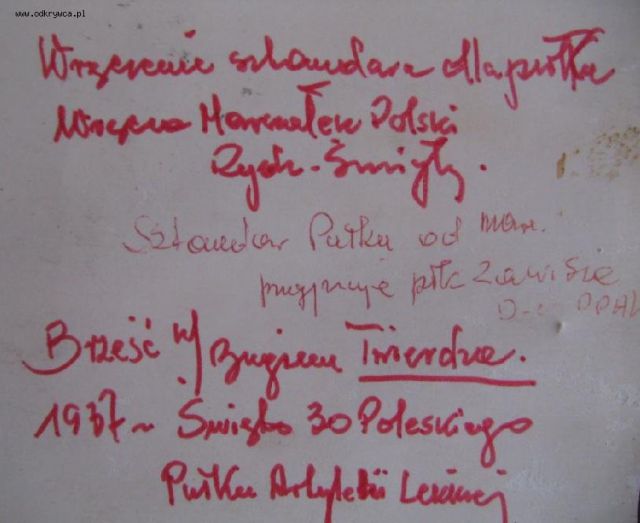 www.odkrywca.pl
Wręczenie sztandara dla pułku
Wręcza Marszałek Polski
Rydz-Śmigły.
Sztandar Pułku od mar.
przyjmuje płk Zawisza
Brześć n/Bugiem Twierdza.
1937 r Święto 30 Poleskiego
Pułku Artylerii Lekkiej